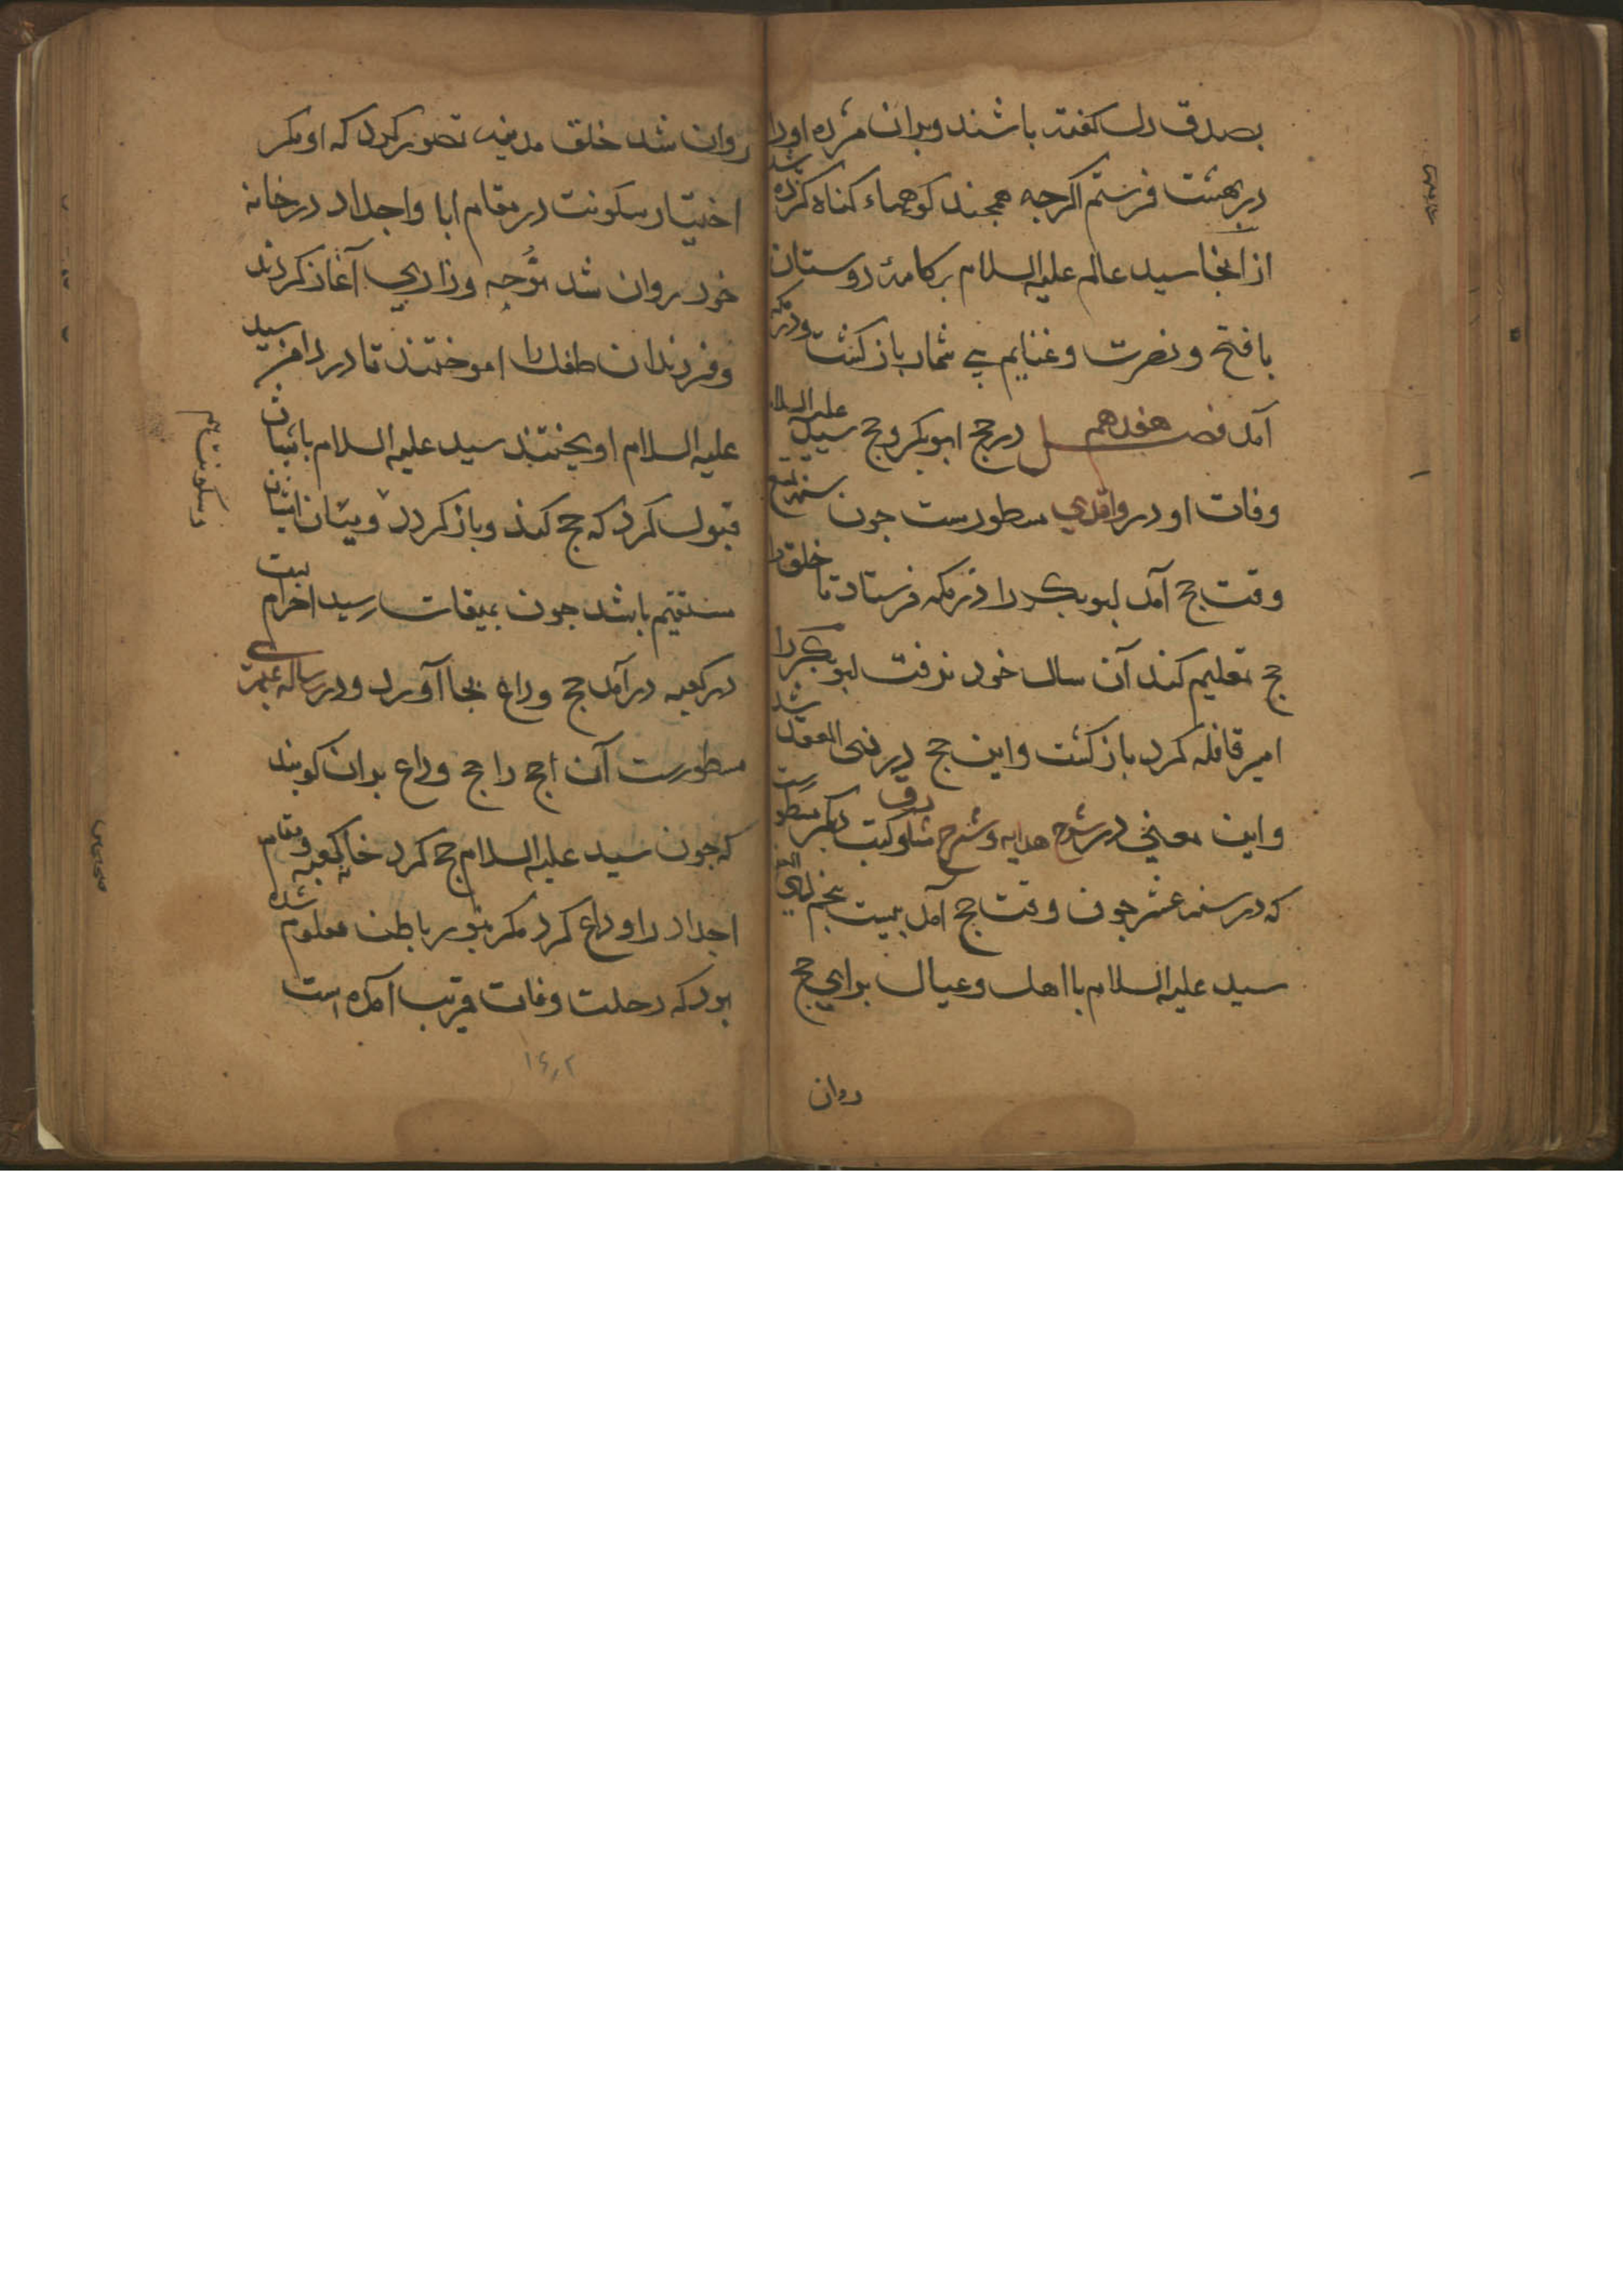 بصدق دل کفته باشند وبدان مژده اورا
در بهشت فرستم اکرچه همچند کوههاء کناه کرده باشد
از انجا سید عالم علیه السلام برکامهٔ دوستان
با فتح ونصرت وغنایم بی شمار باز کشت
آمد فصل هفدهم در حج ابوبکر وحج سید علیه السلام
وفات او در واقدی مسطورست جون سنه تسع
وقت حج آمد ابوبکر را در مکه فرستاد تا خلق را
حج تعلیم کند آن سال خود نرفت ابوبکر را
امیر قافله کرد باز کشت واین حج در ذی القعده شد
واین معنی در شرح هدایه وشرح متفق وکتب دیکر مسطورست
که در سنه عشر جون وقت حج آمد بیست پنجم ذی القعده
سید علیه السلام با اهل وعیال برای حج
روان
روان شد خلق مدینه تصور کرد که او مکر
اختیار سکونت در مقام ابا واجداد در خانه
خود روان شد نوحه وزاری آغاز کردند
وفرزندان طفل را اموختند تا در دامن سید
علیه السلام اویختند سید علیه السلام باشان
قبول کرد که حج کند وباز کردد ومیان ایشان
مستقیم باشد جون بمیقات رسید احرام بست
در کعبه درآمد حج وداع بجا آورد ودر رساله
مسطورست آن حج را حج وداع بدان کویند
که جون سید علیه السلام حج کرد خانه کعبه ومقام
اجداد را وداع کرد مکر بنور باطن معلوم شده
بود که رحلت وفات قریب آمده است